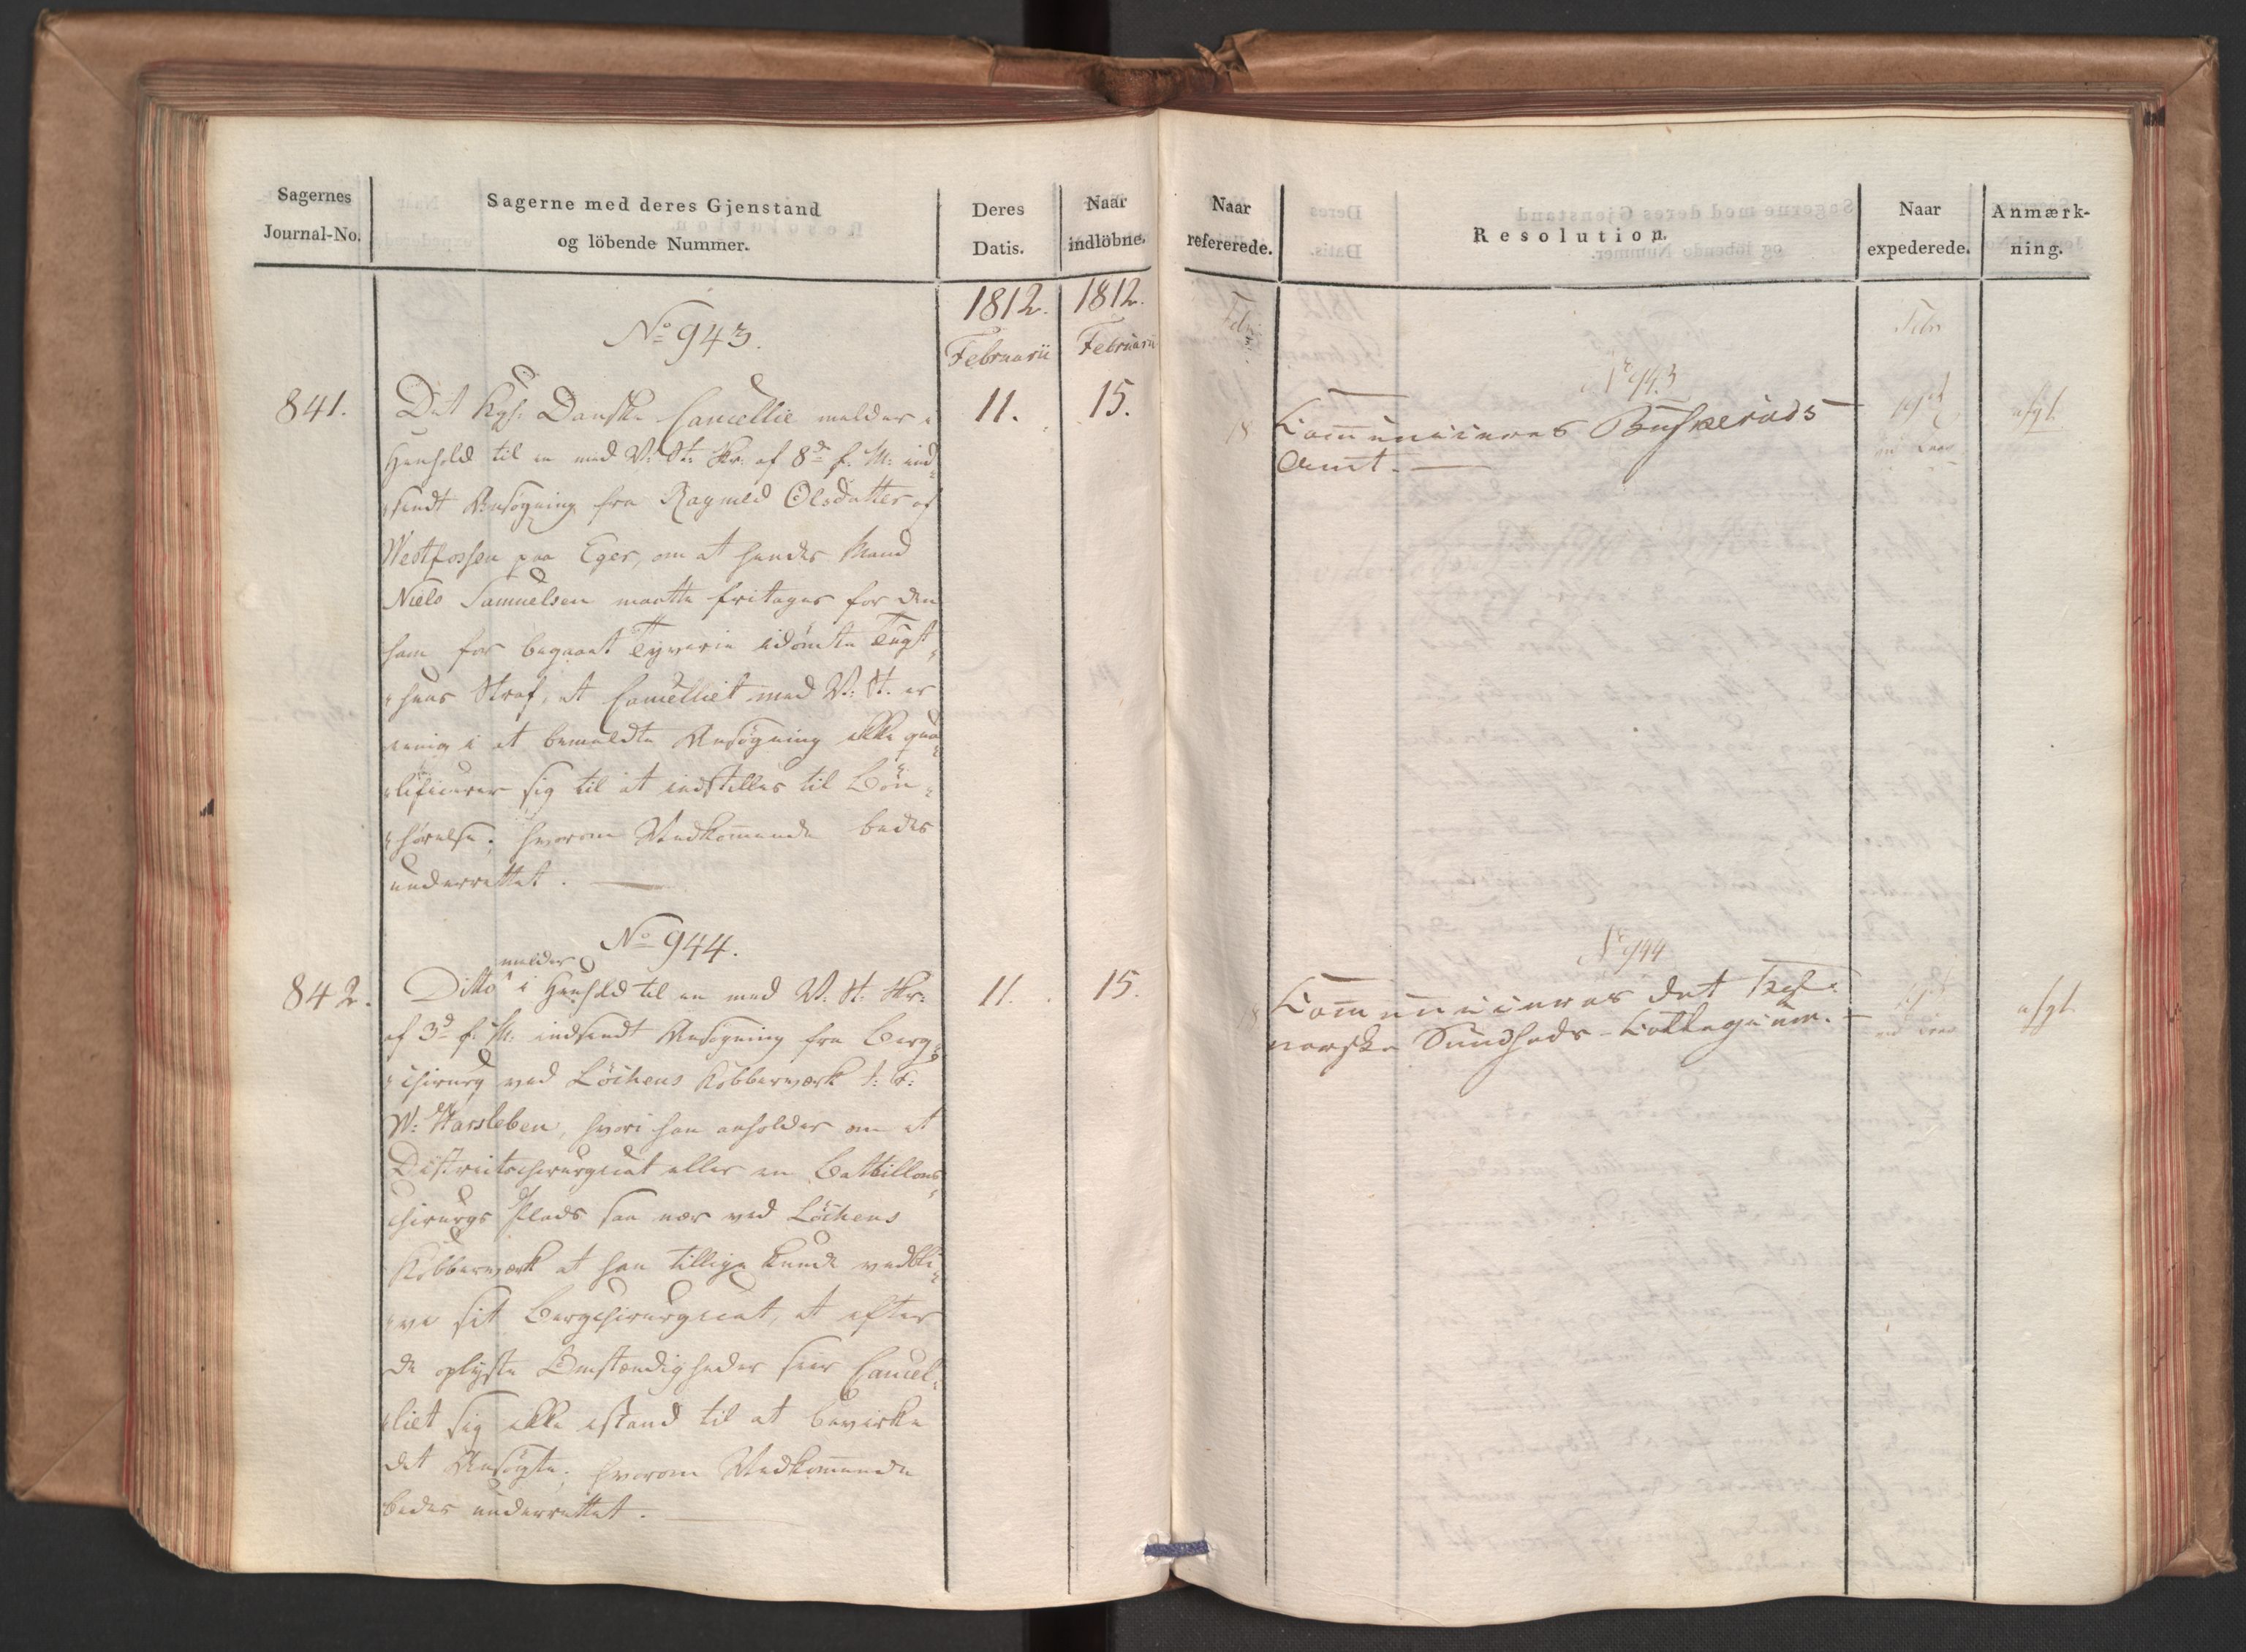 Sagernes
Journal-No.
Sagerne med deres Gjenstand
og löbende Nummer.
Deres
Datis.
Naar
indlöbne.
1812.
Februarii
1812.
Februarii
No 943.
841.
11.
15.
Det Kgl: Danske Cancellie melder i
Henhold til en med V: St: Skr: af 8de f. M: ind-
sendt Ansøgning fra Ragnild Olsdatter af
Westfossen paa Eger, om at hendes Mand
Niels Samuelsen maatte fritages for den
ham for begaaet Tyverie idömte Tugt-
huus Straf, at Cancelliet med V: St. er
eenig i at bemeldte Ansøgning ikke qua-
lificerer sig til at indstilles til Bön-
hörelse; hvorom Vedkommende bedes
underrettet.
No 944.
842.
11.
15.
melder
Ditto i Henhold til en med V. St. Skr:
af 3d f. M: indsendt Ansøgning fra Berg-
chirurg ved Löchens Kobberværk
W: Harsleben, hvori han anholder om et
Districtschirurgicat eller en Battillons
chirurgs Plads saa nær ved Löchens
Kobberværk at han tillige kunde vedbli-
ve sit Bergchirurgicat, at efter
de oplyste Omstændigheder seer Cancel-
liet sig ikke istand til at bevirke
det Ansøgte; hvorom Vedkommende
bedes underrettet.
Naar
refererede.
Resolution.
Naar
expederede.
Anmærk-
ning.
Febr
No 943
18
Communiceres Buskeruds
Amt.
afgl.
No 944
18
Communiceres det Kgl:
norske Sundheds-Collegium.
afgl.